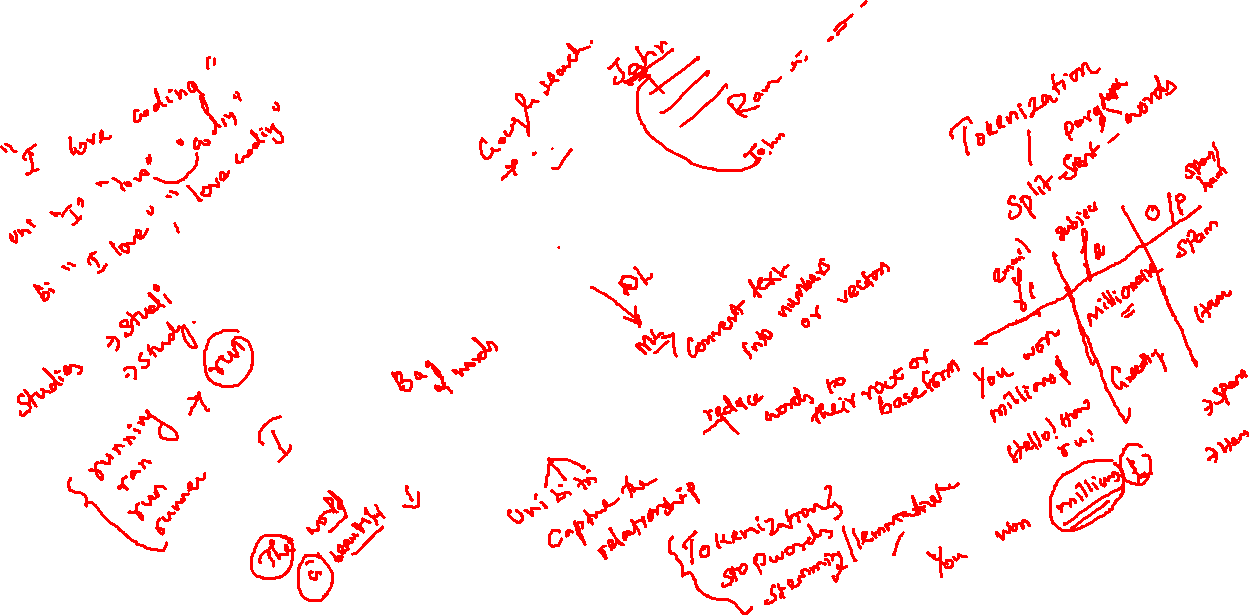 "I love coding"
uni "I" "love" "coding"
Bi "I love", "love coding"
Studies → Studi
→ Study.
running → run
ran
run
runner
I
The world
is beautiful
Google search.
John
Ram
John
Bag
of words
DL
ML
Convert text
into numbers
or vectors
reduce words to
their root or
base form
Uni bi tri
Capture the
relationship
Tokenization
stopwords
stemming / lemmatize
Tokenization
paragraph
Split - Sent - words
email
f1
subject
f2
O/P
spam/
ham
You won
million $
millionaire
spam
Hello! How
r u!
Greeting
Ham
→ Spam
→ Ham
You won million $